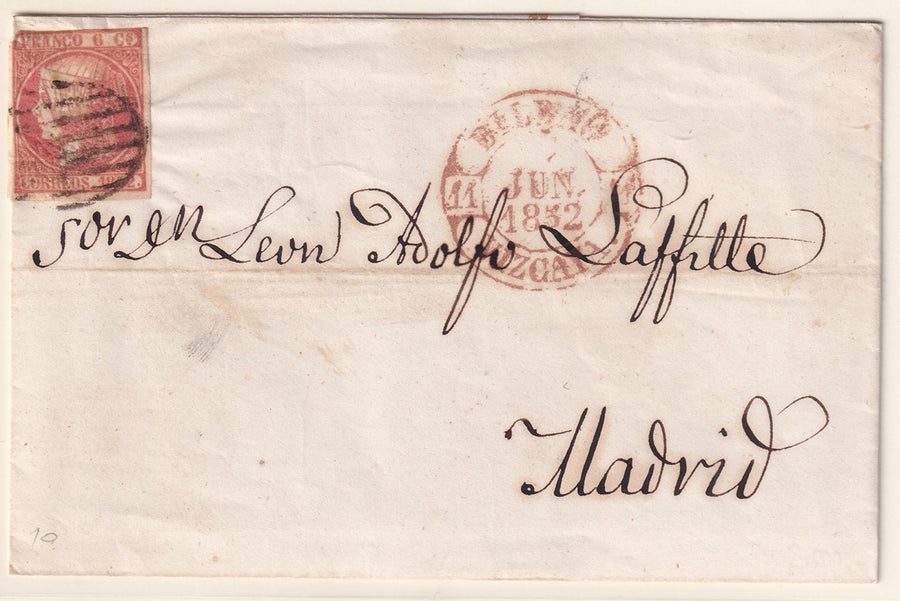 FRANCO 6 CS
CORREOS 1852.
BILBAO
11 JUN.
1852
VIZCAYA
Sor. Dn Leon Adolfo Laffitte
Madrid
10